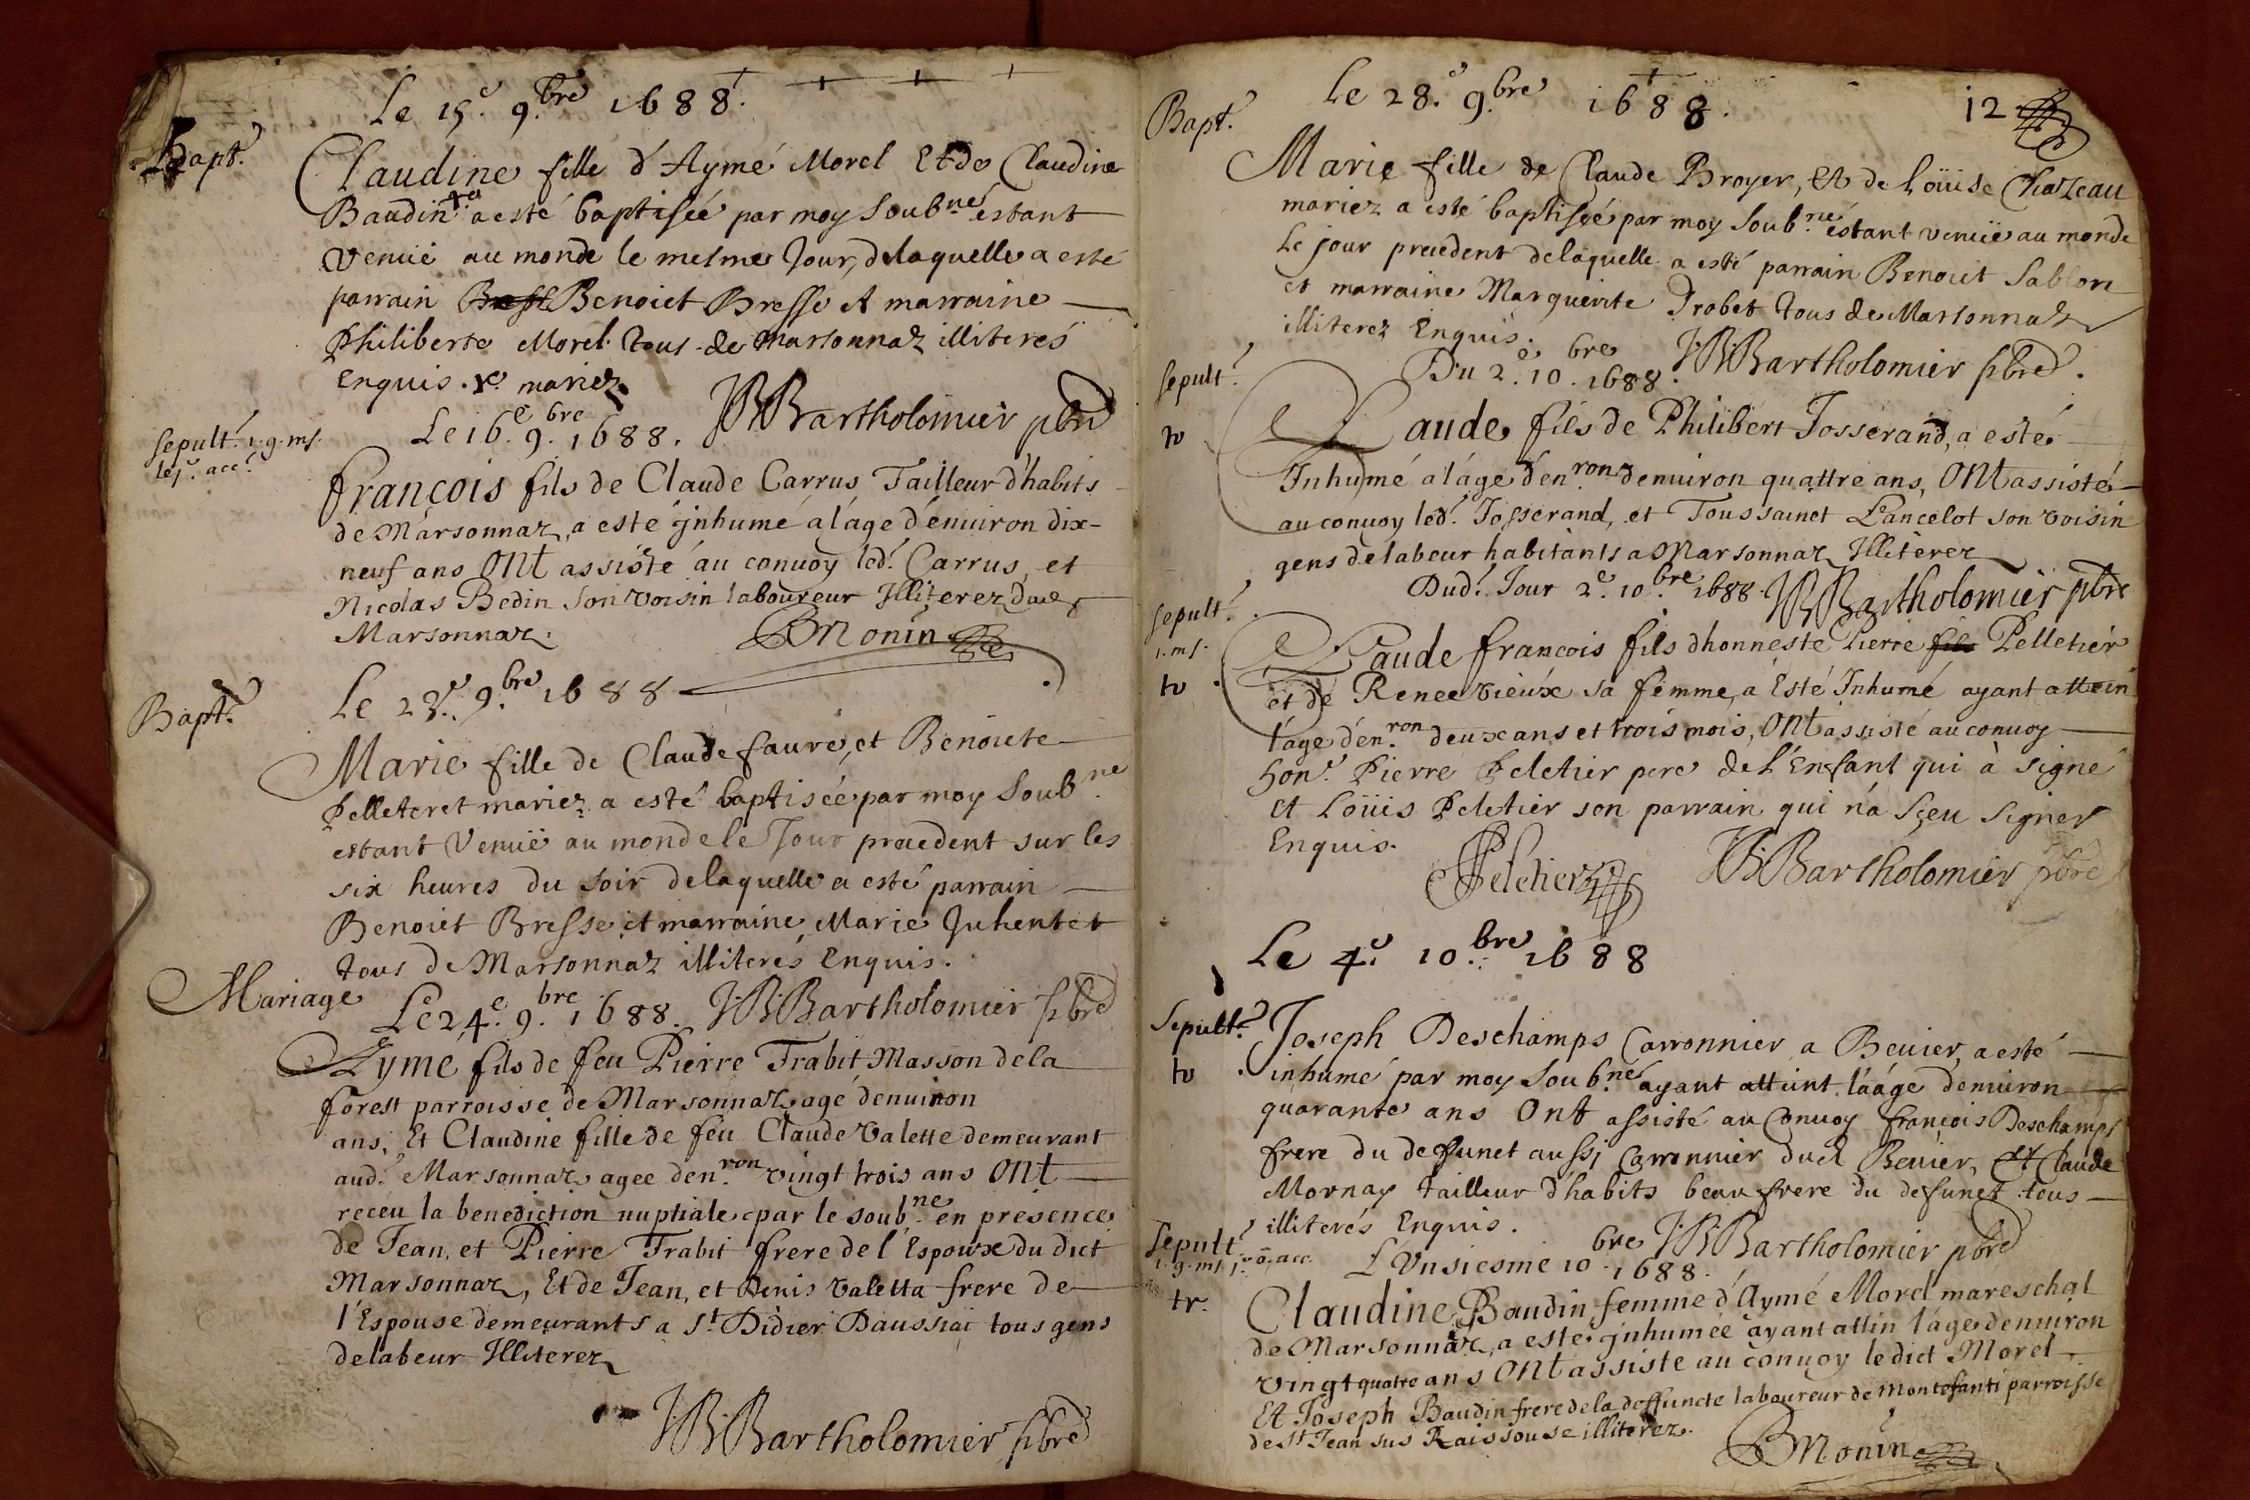 Le 15.e 9.bre 1688.
Bapt.
Claudine fille d'Aymé Morel Et de Claudine
Baudin a esté baptisée par moy soub.né estant
venuë au monde le mesme Jour, de laquelle a esté
parrain Benoict Bresse et marraine
Philiberte Morel tous de Marsonnaz illiterés
Enquis. x. mariez
JBBartholomier pbre
Sepult. 1. g. ms.
Le 16.e 9.bre 1688.
françois fils de Claude Carrus Tailleur d'habits
de Marsonnaz, a esté jnhumé a l'áge d'enuiron dix-
neuf ans Ont assisté au conuoy led. Carrus, et
Nicolas Bedin son voisin laboureur Jlliterez dud
Marsonnaz.
BMonin
Le 23.e 9.bre 1688
Bapt.
Marie fille de Claude faure, et Benoicte
Pelleteret mariez a esté baptisée par moy soub.ne
estant venuë au monde le Jour precedent sur les
six heures du soir de laquelle a esté parrain
Benoict Bresse et marraine Marie Juhentet
tous de Marsonnaz illiterés Enquis.
Mariage
Le 24.e 9.bre 1688. JBBartholomier pbre
Aymé fils de feu Pierre Trabit Masson de la
forest parroisse de Marsonnaz, agé d'enuiron
ans, Et Claudine fille de feu Claude Valette demeurant
aud. Marsonnaz agee d'en.ron vingt trois ans Ont
receu la benediction nuptiale par le soub.ne en presence
de Jean, et Pierre Trabit frere de l'Espoux du dict
Marsonnaz, Et de Jean, et Denis Valetta frere de
l'Espouse demeurants a St Didier Daussiat tous gens
de labeur Jlliterez
JBBartholomier pbre
Le 28.e 9.bre 1688.
12
Bapt.
Marie fille de Claude Broyer, et de Loüise Chazeau
mariez a esté baptisée par moy soub.né estant venuë au monde
Le jour precedent de laquelle a esté parrain Benoict Sablon
et marraine Marguerite Probet tous de Marsonnaz
illiterez Enquis.
JBBartholomier pbre.
Sepult.
Du 2.e 10.bre 1688.
Claude fils de Philibert Josserand, a esté
Jnhumé a l'áge d'en.ron d'enuiron quattre ans, Ont assisté
au conuoy led. Josserand, et Toussainct Lancelot son voisin
gens de labeur habitants a Marsonnaz Jlliterez
Dud. Jour 2.e 10.bre 1688. JBBartholomier pbre
Sepult.
1. ms.
Claude françois fils d'honneste Pierre fils Pelletier
et de Renee vieux sa femme, a Esté Jnhumé ayant attein
l'age d'en.ron deux ans et trois mois, Ont assisté au conuoy
hon.e Pierre Peletier pere de l'Enfant qui à signé
et Loüis Peletier son parrain qui n'a sçeu signer
Enquis.
Peletier
JBBartholomier pbre
Le 4.e 10.bre 1688
Sepult.
Joseph Deschamps Carronnier a Beuier, a esté
inhumé par moy soub.né ayant atteint l'aáge d'enuiron
quarante ans Ont assisté au Conuoy françois Deschamps
frere du defunct aussj Carronnier dud Beuier, et Claude
Mornay tailleur d'habits beau frere du defunct tous
illiterés Enquis.
JBBartholomier pbre
Sepult.
L'Vnsiesme 10.bre 1688.
Claudine Baudin femme d'Aymé Morel mareschal
de Marsonnaz, a esté jnhumée ayant attin l'áge d'enuiron
vingt quatre ans Ont assisté au conuoy le dict Morel
Et Joseph Baudin frere de la deffuncte laboureur de Montefanti parroisse
de St Jean sus Raissouse illiterez.
BMonin